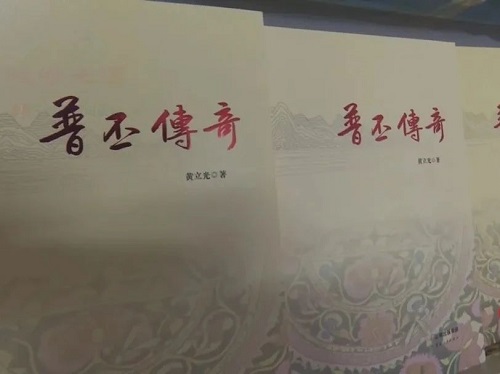 普丕傳奇
黄立光◎著
普丕傳奇
黄立光◎著